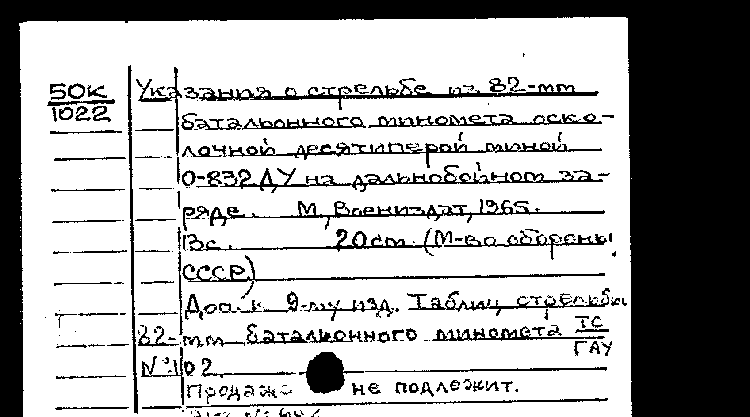 50К
1022
Указания о стрельбе из 82-мм
батальонного миномета оско-
лочной десятиперой миной
О-832ДУ на дальнобойном за-
ряде. М., Воениздат, 1965.
13с. 20см. (М-во обороны
СССР)
Доп. к 9-му изд. Таблиц стрельбы
82-мм батальонного миномета ТС
ГАУ
№102.
Продаже не подлежит.